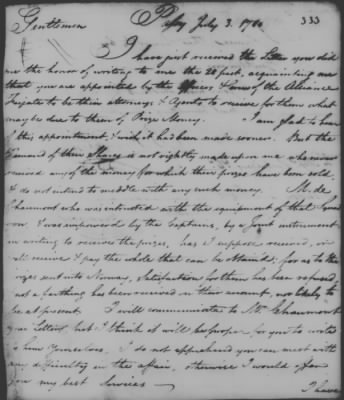 Gentlemen Passy July 3. 1780 333
I have just received the Letter you did
me the honor of writing to me the 28 past, acquainting me
that you are appointed by the Officers & Crew of the Alliance
Frigate to be their attorneys & Agents to receive for them what
may be due to them of Prize Money. I am glad to hear
of this appointment, & wish it had been made sooner. But the
Demand of their Shares is not rightly made upon me who never
received any of the money for which their prizes have been sold,
& do not intend to meddle with any such money. M. de
Chaumont who was intrusted with the equipment of that Squad
ron & was impowered by the Captains, by a Joint instrument
in writing to receive the prizes, has I suppose received, or
will receive & pay the whole that can be obtained; for as to the
prizes sent into Norway, Satisfaction for them has been refused
not a farthing has been received on their account, nor likely to
be at present. I will communicate to Mr. Chaumont
your Letter, but I think it will be proper for you to write
to him yourselves. I do not apprehend you can meet with
any difficulty in the affair, otherwise I would offer
you my best Services —
I have